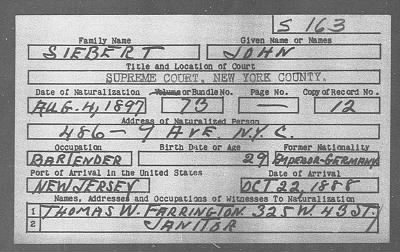 S 163
Family Name Given Name or Names
SIEBERT JOHN
Title and Location of Court
SUPREME COURT, NEW YORK COUNTY.
Date of Naturalization Volume or Bundle No. Page No. Copy of Record No.
AUG. 4, 1897 73 — 12
Address of Naturalized Person
486 - 9 AVE. N.Y.C.
Occupation Birth Date or Age Former Nationality
BARTENDER 29 EMPEROR-GERMANY
Port of Arrival in the United States Date of Arrival
NEW JERSEY OCT 22, 1888
Names, Addresses and Occupations of Witnesses To Naturalization
1 THOMAS W. FARRINGTON 325 W. 43 ST.
2 JANITOR